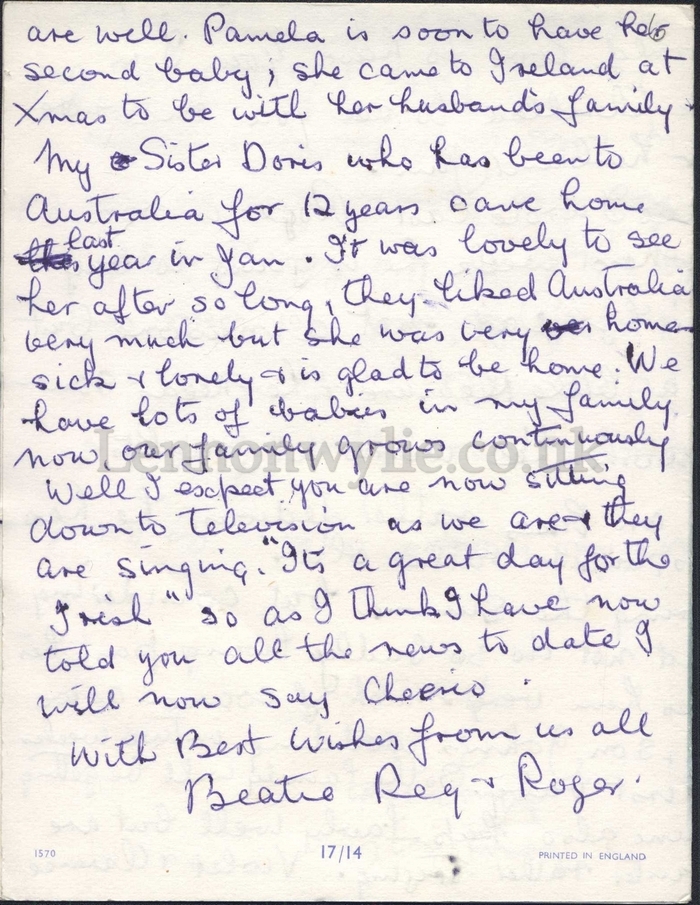 are well. Pamela is soon to have her
second baby; she came to Ireland at
Xmas to be with her husbands family.
My Sister Doris who has been to
Australia for 12 years came home
last year in Jan. It was lovely to see
her after so long, they liked Australia
very much but she was very home
sick & lonely & is glad to be home. We
have lots of babies in my family
now our family grows continuously
Lennonwylie.co.uk
Well I expect you are now sitting
down to Television as we are & they
are singing. "Its a great day for the
Irish" so as I think I have now
told you all the news to date I
will now say Cheerio.
With Best Wishes from us all
Beatie Reg & Roger.
1570
17/14
PRINTED IN ENGLAND